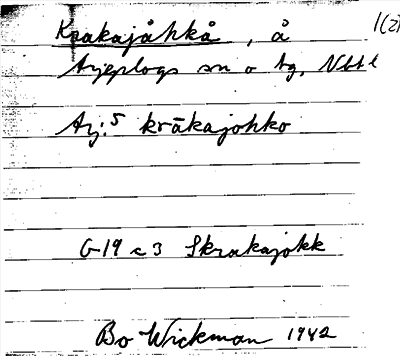 Krakajåhkå, å 1(2)
Arjeplogs sn o tg, Nbtl
Arj. 5 krākajohko
G-19 c 3 Skrakajokk
Bo Wickman 1942